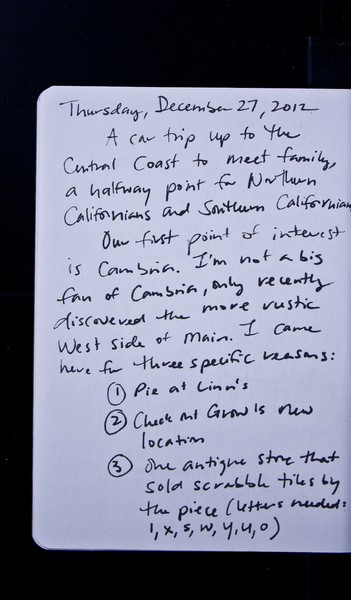 Thursday, December 27, 2012
A car trip up to the
Central Coast to meet family,
a halfway point for Northern
Californians and Southern Californians
Our first point of interest
is Cambria. I'm not a big
fan of Cambria, only recently
discovered the more rustic
West side of Main. I came
here for three specific reasons:
① Pie at Linn's
② Check out Grow's new
location
③ One antique store that
sold scrabble tiles by
the piece (letters needed:
1, x, s, w, y, u, o)